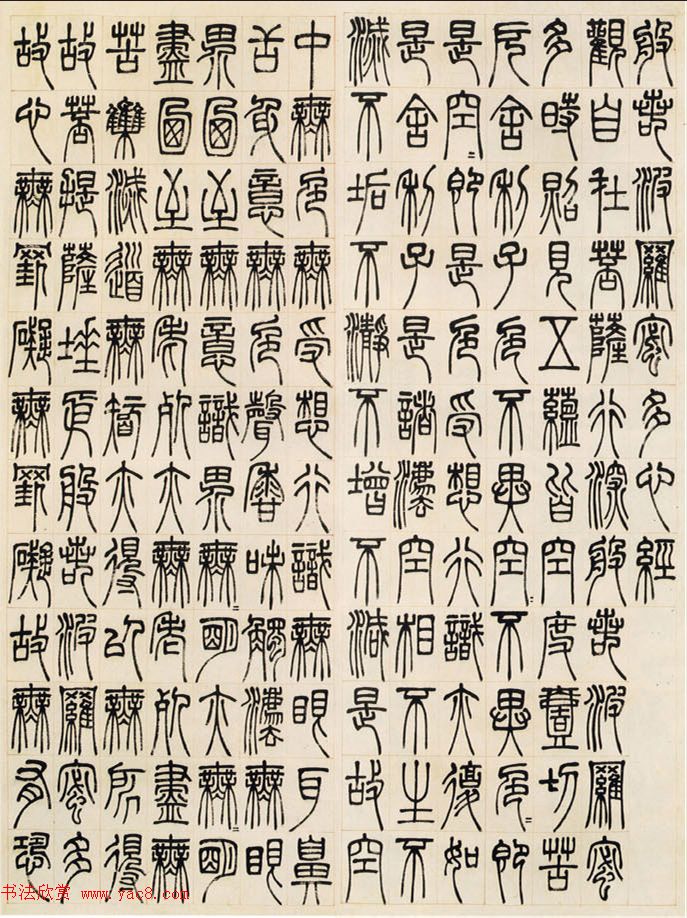 般若波羅蜜多心經
觀自在菩薩行深般若波羅蜜
多時照見五蘊皆空度壹切苦
厄舍利子色不異空〻不異色〻即
是空〻即是色受想行識亦復如
是舍利子是諸法空相不生不
滅不垢不瀞不增不減是故空
中無色無受想行識無眼耳鼻
舌身意無色聲香味觸法無眼
界卥至無意識界無〻明亦無〻明
盡卥至無老死亦無老死盡無
苦集滅道無智亦得以無所得
故菩提薩埵依般若波羅蜜多
故心無罣礙無罣礙故無有恐
书法欣赏 www.yac8.com